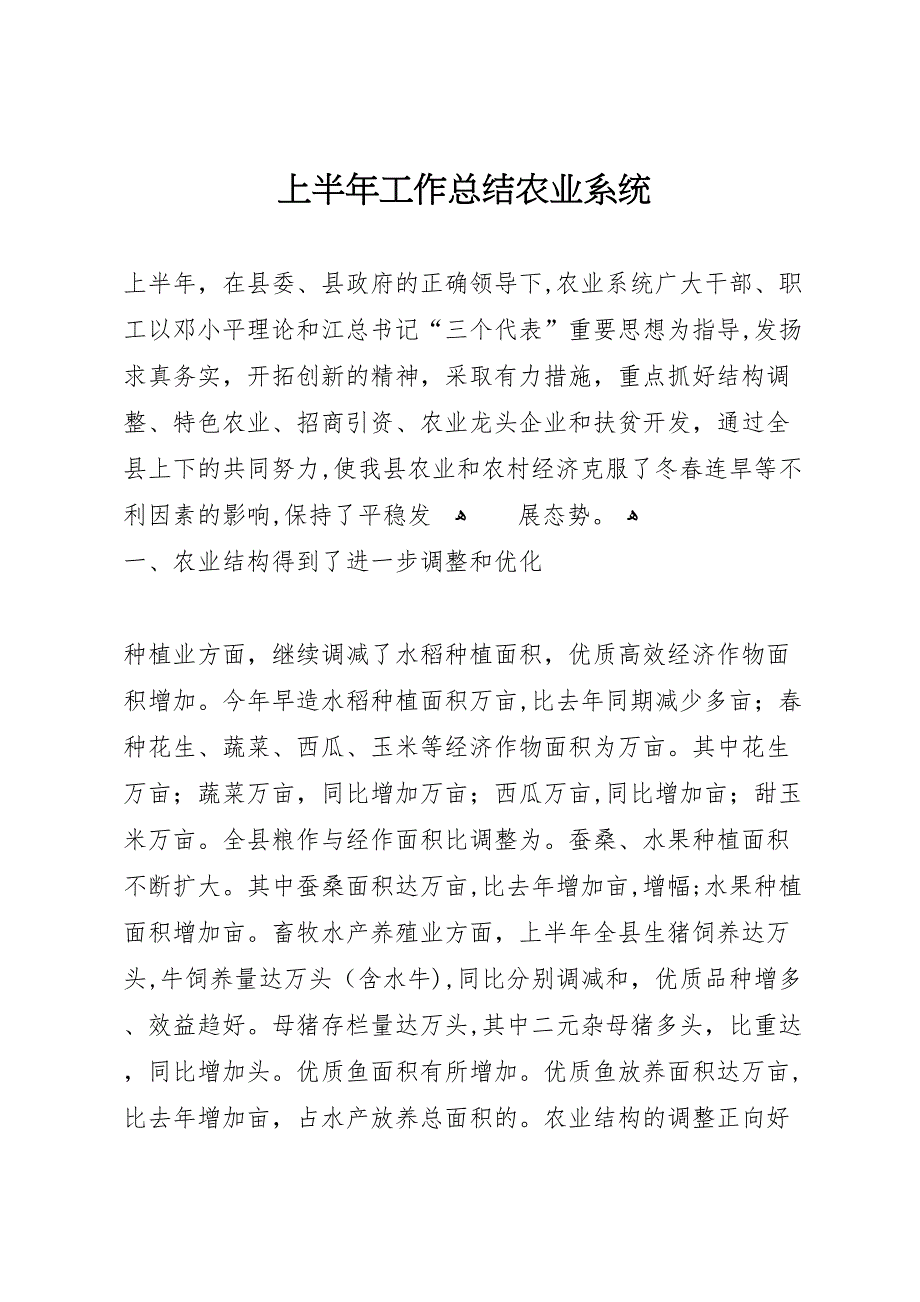 上半年工作总结农业系统
上半年，在县委、县政府的正确领导下,农业系统广大干部、职
工以邓小平理论和江总书记“三个代表”重要思想为指导,发扬
求真务实，开拓创新的精神，采取有力措施，重点抓好结构调
整、特色农业、招商引资、农业龙头企业和扶贫开发，通过全
县上下的共同努力,使我县农业和农村经济克服了冬春连旱等不
利因素的影响,保持了平稳发 ﻫ 展态势。ﻫ
一、农业结构得到了进一步调整和优化
种植业方面，继续调减了水稻种植面积，优质高效经济作物面
积增加。今年早造水稻种植面积万亩,比去年同期减少多亩；春
种花生、蔬菜、西瓜、玉米等经济作物面积为万亩。其中花生
万亩；蔬菜万亩，同比增加万亩；西瓜万亩,同比增加亩；甜玉
米万亩。全县粮作与经作面积比调整为。蚕桑、水果种植面积
不断扩大。其中蚕桑面积达万亩,比去年增加亩,增幅;水果种植
面积增加亩。畜牧水产养殖业方面，上半年全县生猪饲养达万
头,牛饲养量达万头（含水牛),同比分别调减和，优质品种增多
、效益趋好。母猪存栏量达万头,其中二元杂母猪多头，比重达
，同比增加头。优质鱼面积有所增加。优质鱼放养面积达万亩,
比去年增加亩，占水产放养总面积的。农业结构的调整正向好